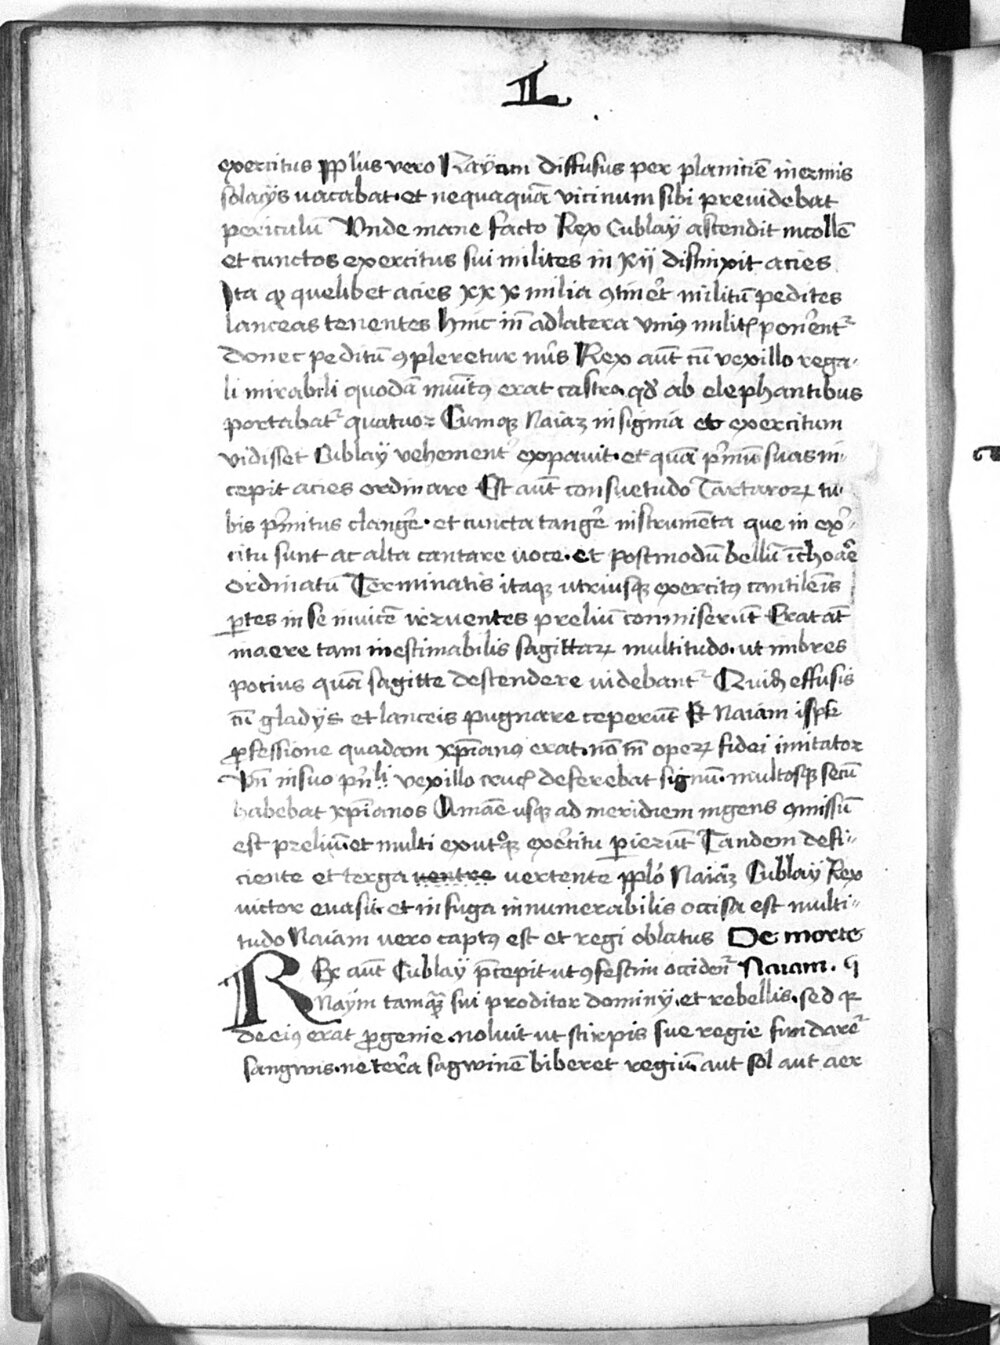 II
exercitus pp̅lus vero Nayam diffusus per planiciē inermis
solacijs vacabat · et nequaquā vicinum sibi previdebat
periculū Vnde mane facto Rex Cublaÿ ascendit in collē
et cunctos exercitus sui milites in xij distinxit acies
Ita qꝫ quelibet acies xxx milia ꝯtiner̄t militū pedites
lanceas tenentes hinc in̄ ad latera vniꝰ milit̄ ponerent᷑
donec peditū ꝯpleretur nūs Rex aūt cū vexillo rega-
li mirabili quodā munitꝰ erat castro · qd̄ ab elephantibus
portabat᷑ quatuor Cumqꝫ Naiaꝫ insignia et exercitum
vidisset Cublaÿ vehementer̄ expauit · et quā pͥmū suas in
cepit acies ordinare Est aūt consuetudo Tartaroꝝ tu-
bis pͥmitus clangēr · et cuncta tangēr instrumēta que in ex̄er-
citu sunt ac alta cantare uoce · et postmodū bellū īchoar̄e
ordinatū Terminatis itaqꝫ vtriusqꝫ exercitꝰ cantilenis
ꝑtes in se inuicē irruentes preliū commiserūt Erat aūt
in aere tam inestimabilis sagittaꝝ multitudo · ut imbres
pocius quā sagitte descendere uidebant᷑ Quiꝫ effusis
cū gladijs et lanceis pugnare ceperūt Et Naiam ip̄e
ꝓfessione quadam xp̄ianꝰ erat · nō tn̄ operꝝ fidei imitator
Vn̄ in suo pn̄li vexillo cruc̄ deferebat signū · multosqꝫ secū
habebat xp̄ianos A mane usqꝫ ad meridiem ingens ꝯmissū
est preliū et multi ex vtͦqꝫ exercitu ꝑierūt Tandem defi-
ciente et terga ventre vertente pp̄lo Naiaꝫ Cublaÿ Rex
victor euasit · et in fuga innumerabilis occisa est multi-
tudo Naiam vero captꝰ est et regi oblatus De morte
Rex aūt Cublaÿ p̄cepit ut ꝯfestim occider̄ Naiam .
Naÿm tamqͣꝫ sui proditor dominij · et rebellis · sed qꝛ
de eiꝰ erat ꝓgenie · noluit ut stirpis sue regie fundarer̄
sangwis · ne terra sagwinē biberet regiū aut sol aut aer